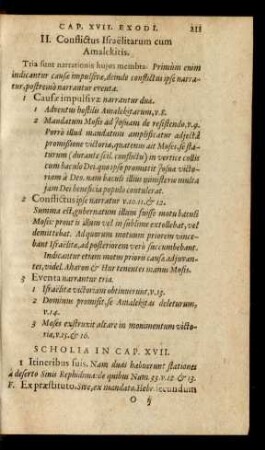 CAP. XVII. EXODI. 211
II. Conflictus Israëlitarum cum
Amalekitis.
Tria sunt narrationis hujus membra. Primùm enim
indicantur causæ impulsivæ, deinde conflictus ipse narra-
tur, postremò narrantur eventa.
1 Causæ impulsivæ narrantur duæ.
1 Adventus hostilis Amalekitarum, v. 8.
2 Mandatum Mosis ad Josuam de resistendo, v. 9.
Porrò illud mandatum amplificatur adjectâ
promissione victoria, quatenus ait Moses, se sta-
turum (durante scil. conflictu) in vertice collis
cum baculo Dei. quo ipso promittit Josuæ victo-
riam à Deo. nam baculi illius ministerio multa
jam Dei beneficia populo contulerat.
2 Conflictus ipse narratur v. 10. 11. & 12.
Summa est, gubernatum illum fuisse motu baculi
Mosis: prout is illum vel in sublime extollebat, vel
demittebat. Ad quorum motuum priorem vince-
bant Israëlitæ, ad posteriorem verò succumbebant.
Indicantur etiam motus prioris causæ adjuvan-
tes, videl. Aharon & Hur tenentes manus Mosis.
3 Eventa narrantur tria.
1 Israëlitæ victoriam obtinuerunt, v. 13.
2 Dominus promisit, se Amalekitas deleturum,
v. 14.
3 Moses exstruxit altare in monumentum victo-
riæ, v. 15. & 16.
SCHOLIA IN CAP. XVII.
1 Itineribus suis. Nam duas habuerunt stationes
à deserto Sinis Rephidima: de quibus Num. 33. v. 12. & 13.
V. Ex præstituto. Sive, ex mandato. Hebr. secundum
O ij